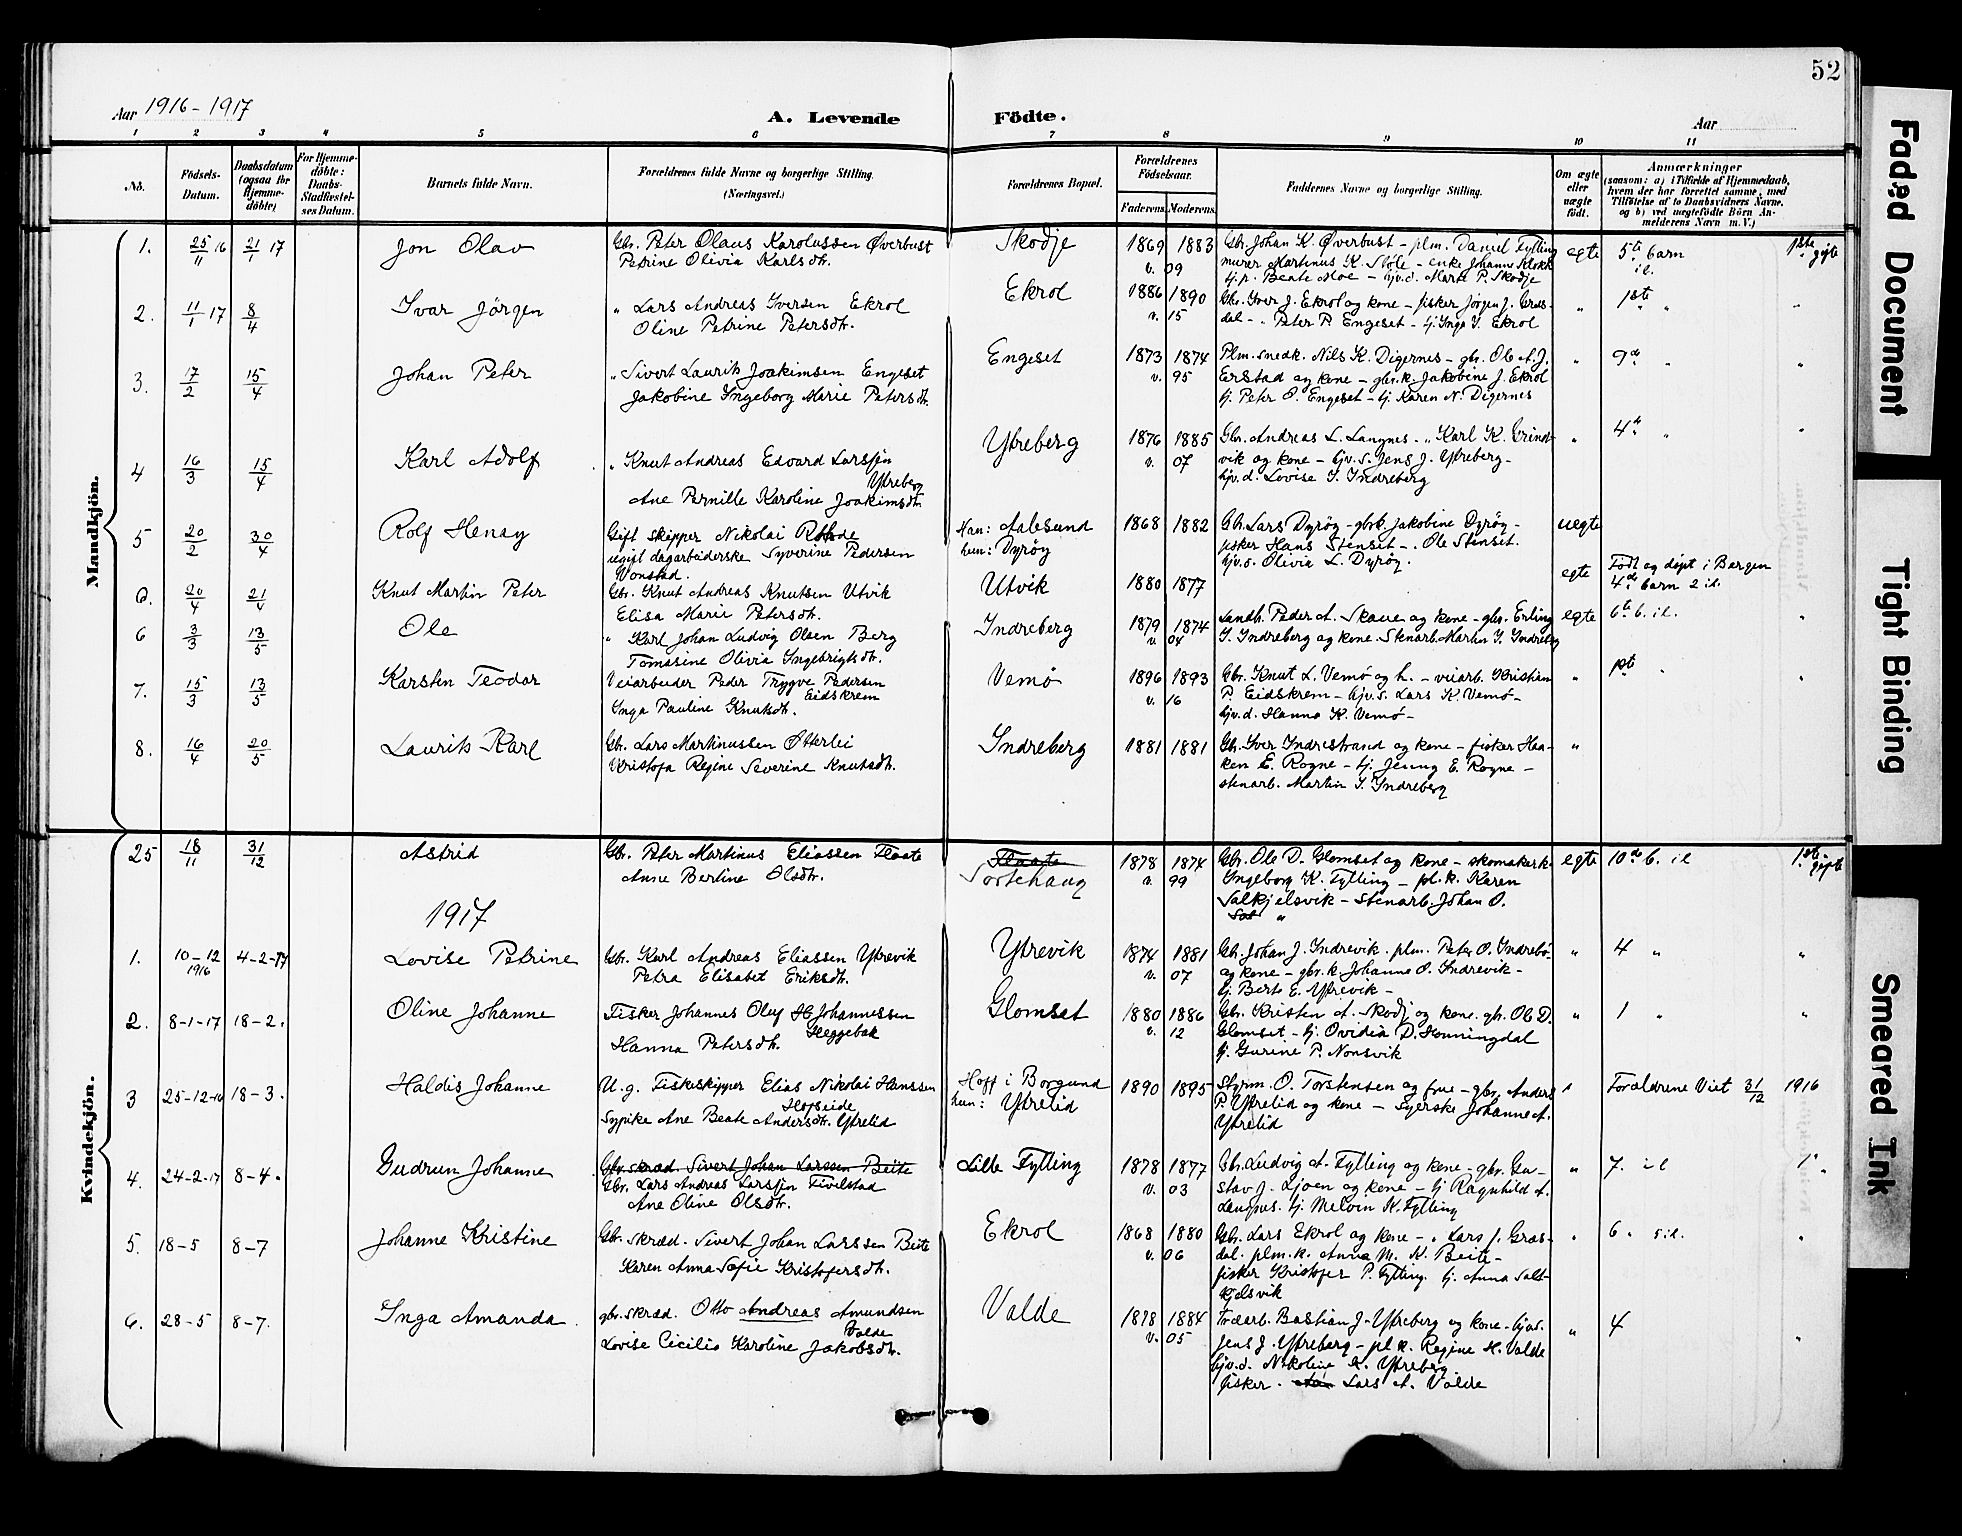 52
Aar 1916-1917
A. Levende Födte.
Aar
1 2 3 4 5 6 7 8 9 10 11
No.
Födsels-Datum.
Daabsdatum (ogsaa for Hjemme-döbte)
For Hjemme-döbte: Daabs-Stadfæstel-ses Datum.
Barnets fulde Navn.
Forældrenes fulde Navne og borgerlige Stilling. (Næringsvei.)
Forældrenes Bopæl.
Forældrenes Födselsaar.
Faderens. Moderens.
Faddernes Navne og borgerlige Stilling.
Om ægte eller uægte födt.
Anmærkninger
(saasom: a) i Tilfælde af Hjemmedaab, hvem der har forrettet samme, med Tilföielse af to Daabsvidners Navne, og b) ved uægtefödte Börn An-melderens Navn m. V.)
Mandkjön.
1. 25/11 16 21/1 17 Jon Olav Gbr. Peter Olaus Karolussen Øverbust Skodje 1869 1883 Gbr. Johan K. Øverbust - plm. Daniel Fylling egte 5te barn 1ste gifte
Petrine Olivia Karlsdtr. v. 09 murer Martinus K. Stöle - enke Johanne Klokk il.
tj.p. Beate Moe - hjv.d. Marte P. Skodje
2. 11/1 17 8/4 Ivar Jörgen " Lars Andreas Iversen Ekrol Ekrol 1886 1890 Gbr. Iver J. Ekrol og kone - fisker Jörgen J. Gras- " 1ste " "
Oline Petrine Petersdtr. v. 15 dal - " Peter P. Engeset - tj. Inga I. Ekrol
3. 17/2 15/4 Johan Peter " Sivert Laurits Joakimsen Engeset Engeset 1873 1874 Plm. snedk. Nils K. Digernes - gbr. Ole A. J. " 9de " "
Jakobine Ingeborg Marie Petersdtr. v. 95 Erstad og kone - gbr.k. Jakobine J. Ekrol
tj. Peter O. Engeset - tj. Karen N. Digernes
4 16/3 15/4 Karl Adolf " Knut Andreas Edvard Larssen Ytreberg Ytreberg 1876 1885 Gbr. Andreas L. Langnes - " Karl K. Grind- " 4de " "
Ane Pernille Karoline Joakimsdtr. v. 07 vik og kone - hjv.s. Jens J. Ytreberg -
hjv.d. Lovise I. Indreberg
5 20/2 30/4 Rolf Henay Gift skipper Nikolai Han: Aalesund 1868 1882 Gbr. Lars Dyröy - gbrk. Jakobine Dyröy - uegte
ugift dagarbeiderske Syverine Pedersen Vonstad. hun: Dyröy fisker Hans Stenset - " Ole Stenset.
hjv.d. Olivia L. Dyröy.
6. 20/4 21/4 Knut Martin Peter Gbr. Knut Andreas Knutsen Utvik Utvik 1880 1877 egte Födt og döpt i Bergen
Elisa Marie Petersdtr. 4de barn 2 il.
6 3/3 13/5 Ole " Karl Johan Ludvig Olsen Berg Indreberg 1879 1874 Landh. Peder A. Skaue og kone - gbr. Erling egte 6te b. il. "
Tomasine Olivia Ingebrigtsdtr. v. 04 I. Indreberg og kone. Stenarb. Martin I. Indreberg
7. 15/3 13/5 Karsten Teodor Veiarbeider Peder Trygve Pedersen Eidskrem Vemö 1896 1893 Gbr. Knut L. Vemö og h. - veiarb. Kristian " 1ste " "
Inga Pauline Knutsdtr. v. 16 P. Eidskrem - hjv.s. Lars K. Vemö -
hjv.d. Hanna K. Vemö -
8. 16/4 20/5 Laurits Karl Gbr. Lars Martinussen Otterlei Indreberg 1881 1881 Gbr. Iver Indrestrand og kone - fisker Haa- "
Kristofa Regine Severine Knutsdtr. ken E. Rogne - tj. Jenny E. Rogne -
stenarb. Martin I. Indreberg
Kvindekjön.
25 18/11 31/12 Astrid Gbr. Peter Martinus Eliassen Flaate Flaate 1878 1874 Gbr. Ole D. Glomset og kone - skomakerk. egte 10de b. il 1ste gifte
Anne Bertine Olsdtr. Sortehaug v. 99 Ingeborg K. Fylling - pl.k. Karen
Salkjelsvik - stenarb. Johan O.
Sal "
1917
1. 10-12 1916 4-2-17 Lovise Petrine Gbr. Karl Andreas Eliassen Ytrevik Ytrevik 1874 1881 Gbr. Johan J. Indrevik. plm. Peter O. Indrebö " 4 " "
Petra Elisabet Eriksdtr. v. 07 og kone - gbr.k. Johanne O. Indrevik -
tj. Berte E. Ytrevik -
2. 8-1-17 18-2. Oline Johanne Fisker Johannes Oluf H Johannessen Heggebak Glomset 1880 1886 Gbr. Kristen A. Skodj og kone. gbr. Ole D. " 1 " "
Hanna Petersdtr. v. 12 Glomset - tj. Ovidia D. Honningdal
tj. Gurine P. Nonsvik
3 25-12-16 18-3. Haldis Johanne U.g. Fiskeskipper Elias Nikolai Hanssen Hofseide Hoff i Borgund 1890 1895 Styrm. O. Torstensen og frue - gbr. Anders " Forældrene Viet 31/12 1916
Sypike Ane Beate Andersdtr. Ytrelid hun: Ytrelid P. Ytrelid og kone - syerske Johanne A.
Ytrelid
4. 24-2-17 8-4. Gudrun Johanne Gbr. skræd. Sivert Johan Larssen Beite Lille Fylling 1878 1877 Gbr. Ludvig A. Fylling og kone - gbr. Gu- " 7. il 1. "
Gbr. Lars Andreas Larssen Tivelstad v. 03 stav J. Ljoen og kone - tj Ragnhild A.
Ane Oline Olsdtr. Langnes. tj. Melvin K. Fylling
5. 18-5 8-7 Johanne Kristine Gbr. skræd. Sivert Johan Larssen Beite Ekrol 1868 1880 Gbr. Lars Ekrol og kone - " Lars J. Gras- " 6. 5 il. "
Karen Anna Sofie Kristofersdtr. v. 06 dal. plm.k. Anna M. K. Beite -
fisker Kristofer P. Fylling. tj. Anna Salt-
kjelsvik
6. 28-5 8-7. Inga Amanda. gbr. skræd. Otto Andreas Amundsen Valde Valde 1878 1884 Træarb. Bastian J. Ytreberg og kone - hjvs. " 4 "
Lovise Cecilie Karoline Jakobsdtr. v. 05 Jens J. Ytreberg - pl k. Regine H. Valde
hjv.d. Nikoline K. Ytreberg
fisker. Lars A. Valde
Faded Document
Tight Binding
Smeared Ink